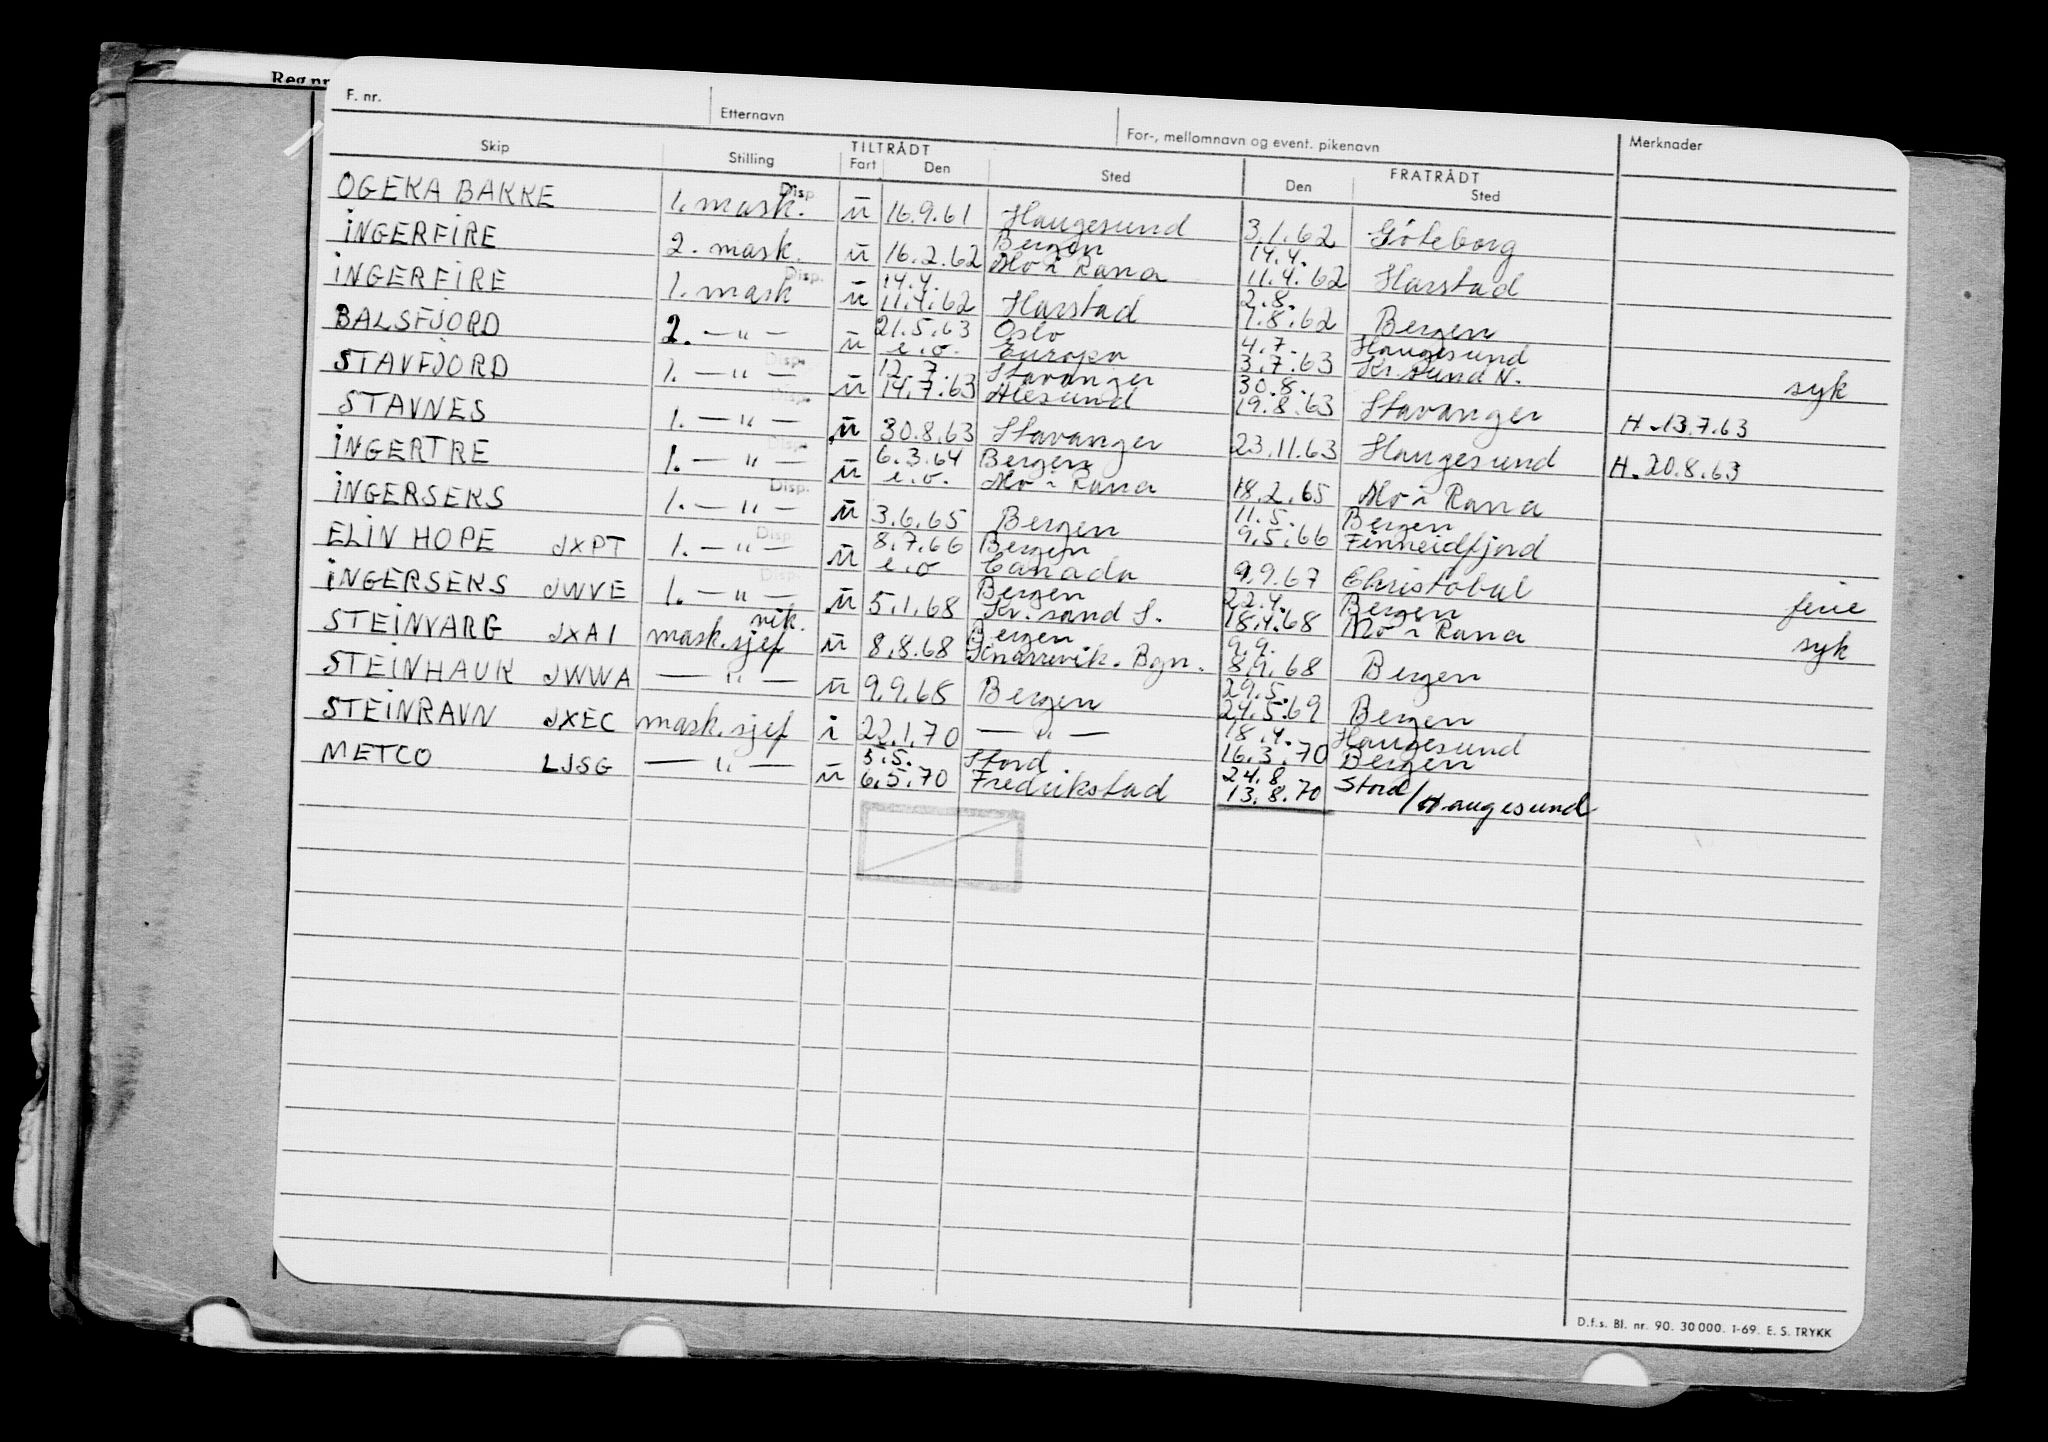 Reg.nr
F. nr. Etternavn For-, mellomnavn og event. pikenavn Merknader
Skip Stilling TILTRÅDT FRATRÅDT
Fart Den Sted Den Sted
OGEKA BAKKE 1. mask. Disp. ū 16.9.61 Haugesund 3.1.62 Göteborg
INGERFIRE 2. mask. ū 16.2.62 Bergen Mo i Rana 14.4. 11.4.62 Harstad
INGERFIRE 1. mask Disp. ū 14.4. 11.4.62 Harstad 2.8. 1.8.62 Bergen
BALSFJORD 2. — " — ū 21.5.63 e.o. Oslo Europa 4.7. 3.7.63 Haugesund Kr. sund N. syk
STAVFJORD 1. — " — Disp. ū 12.7. 14.7.63 Stavanger Ålesund 30.8. 19.8.63 Stavanger H. 13.7.63
STAVNES 1. — " — Disp. ū 30.8.63 Stavanger 23.11.63 Haugesund H. 20.8.63
INGERTRE 1. — " — Disp. ū 6.3.64 e.o. Bergen Mo i Rana 18.2.65 Mo i Rana
INGERSEKS 1. — " — Disp. ū 3.6.65 Bergen 11.5. 9.5.66 Bergen Finneidfjord
ELIN HOPE JXPT 1. — " — Disp. ū 8.7.66 e.o Bergen Canada 9.9.67 Christobal ferie
INGERSEKS JWVE 1. — " — Disp. ū 5.1.68 Bergen Kr. sand S. 22.4. 18.4.68 Bergen Mo i Rana syk
STEINVARG JXAI mask.sjef vik. ū 8.8.68 Bergen Knarrevik. Bgn. 9.9. 8.9.68 Bergen
STEINHAUK JWWA — " — ū 9.9.68 Bergen 29.5. 24.5.69 Bergen
STEINRAVN JXEC mask.sjef i 22.1.70 — " — 18.4. 16.3.70 Haugesund Bergen
METCO LJSG — " — ū 5.5. 6.5.70 Stord Fredrikstad 24.8 13.8.70 Stord/Haugesund
D.f.s. Bl. nr. 90. 30000. 1-69. E. S. TRYKK